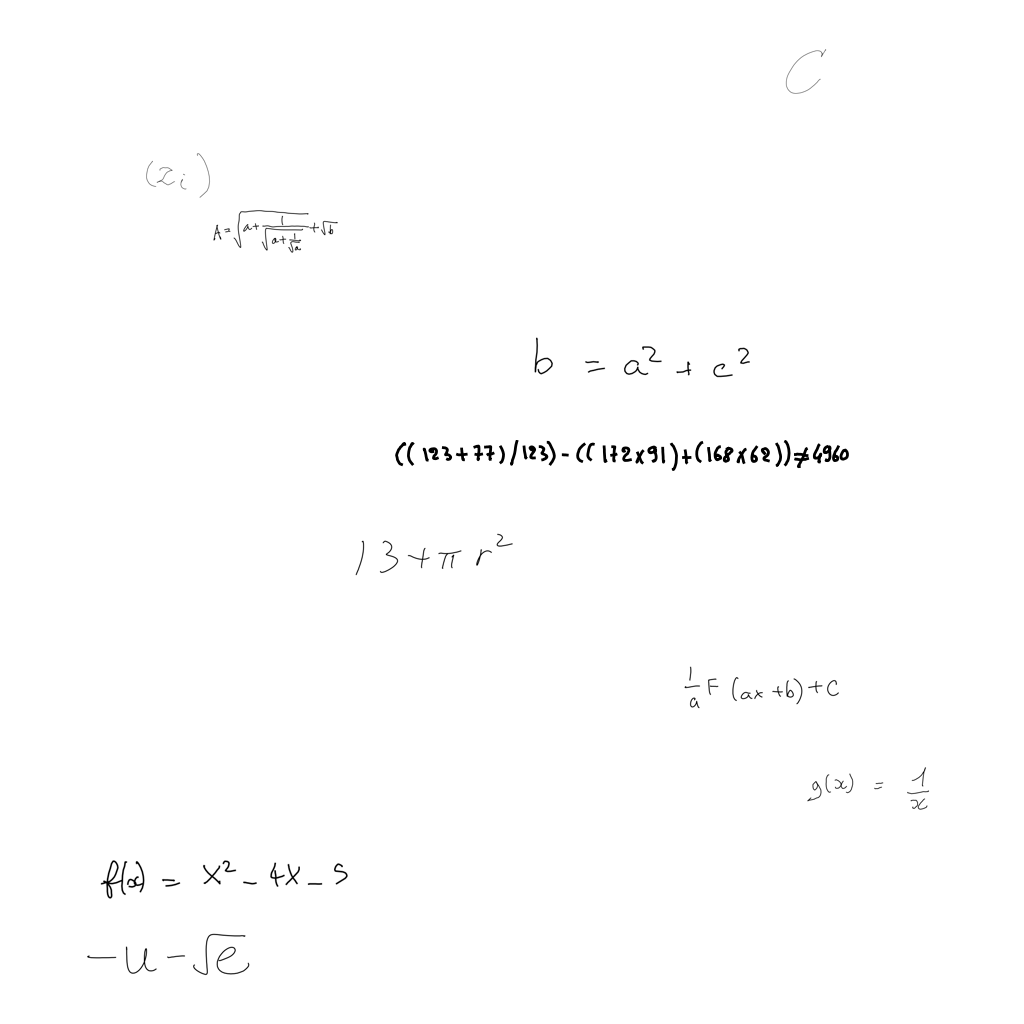 C
(z_i)
A=\sqrt{a+\frac{1}{\sqrt{a+\frac{1}{\sqrt{a}}}}}+\sqrt{b}
b = a² + c²
((123+77)/123)-((172×91)+(168×62))≠4960
13+πr²
\frac{1}{a}F(ax+b)+C
g(x) = \frac{1}{x}
f(x) = x²-4x-5
-u-√e